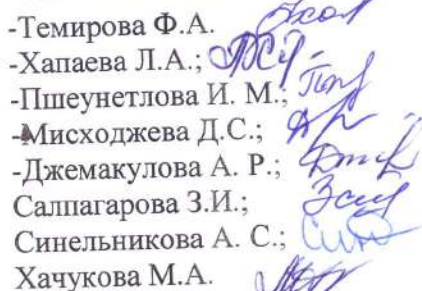 -Темирова Ф.А.
-Хапаева Л.А.;
-Пшеунетлова И. М.;
-Мисходжева Д.С.;
-Джемакулова А. Р.;
Салпагарова З.И.;
Синельникова А. С.;
Хачукова М.А.